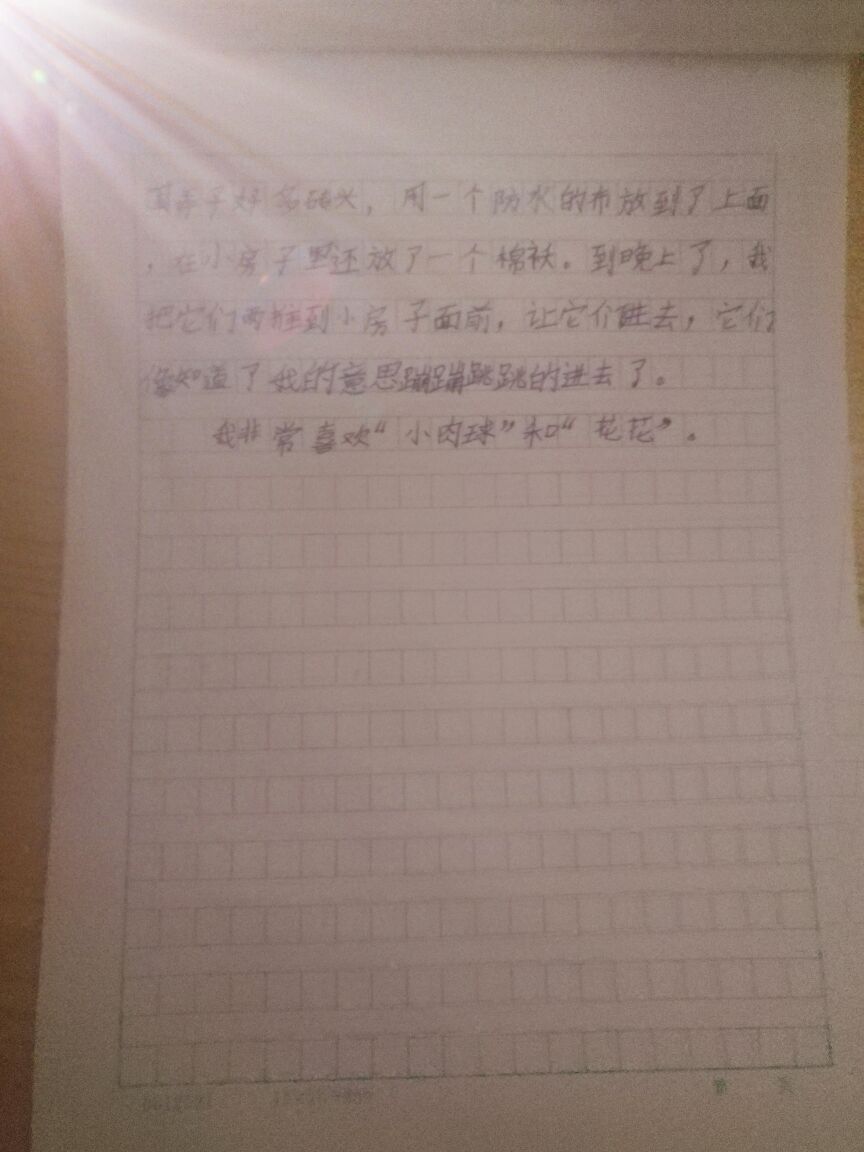 好多砖头，用一个防水的布放到了上面
，在小房子里还放了一个棉袄。到晚上了，我
把它们两抱到小房子面前，让它们进去，它们
像知道了我的意思蹦蹦跳跳的进去了。
我非常喜欢“小肉球”和“花花”。